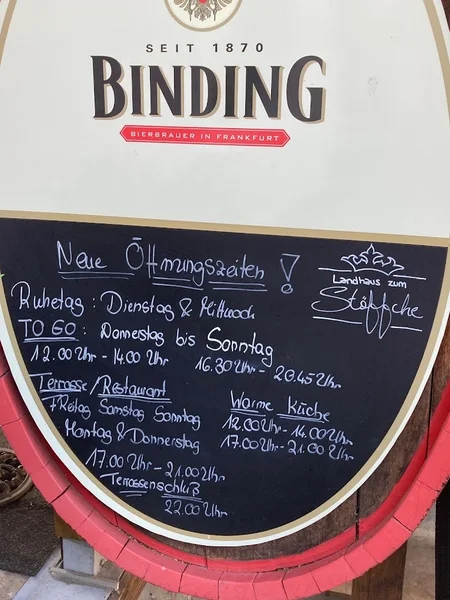 SEIT 1870
BINDING
BIERBRAUER IN FRANKFURT
Neue Öffnungszeiten !
Landhaus zum
Stöffche
Ruhetag : Dienstag & Mittwoch
TO GO : Donnerstag bis Sonntag
12.00 Uhr - 14.00 Uhr 16.30 Uhr - 20.45 Uhr
Terrasse/Restaurant
Freitag Samstag Sonntag
Montag & Donnerstag
17.00 Uhr - 21.00 Uhr
Terrassenschluß
22.00 Uhr
Warme Küche
12.00 Uhr - 14.00 Uhr
17.00 Uhr - 21.00 Uhr